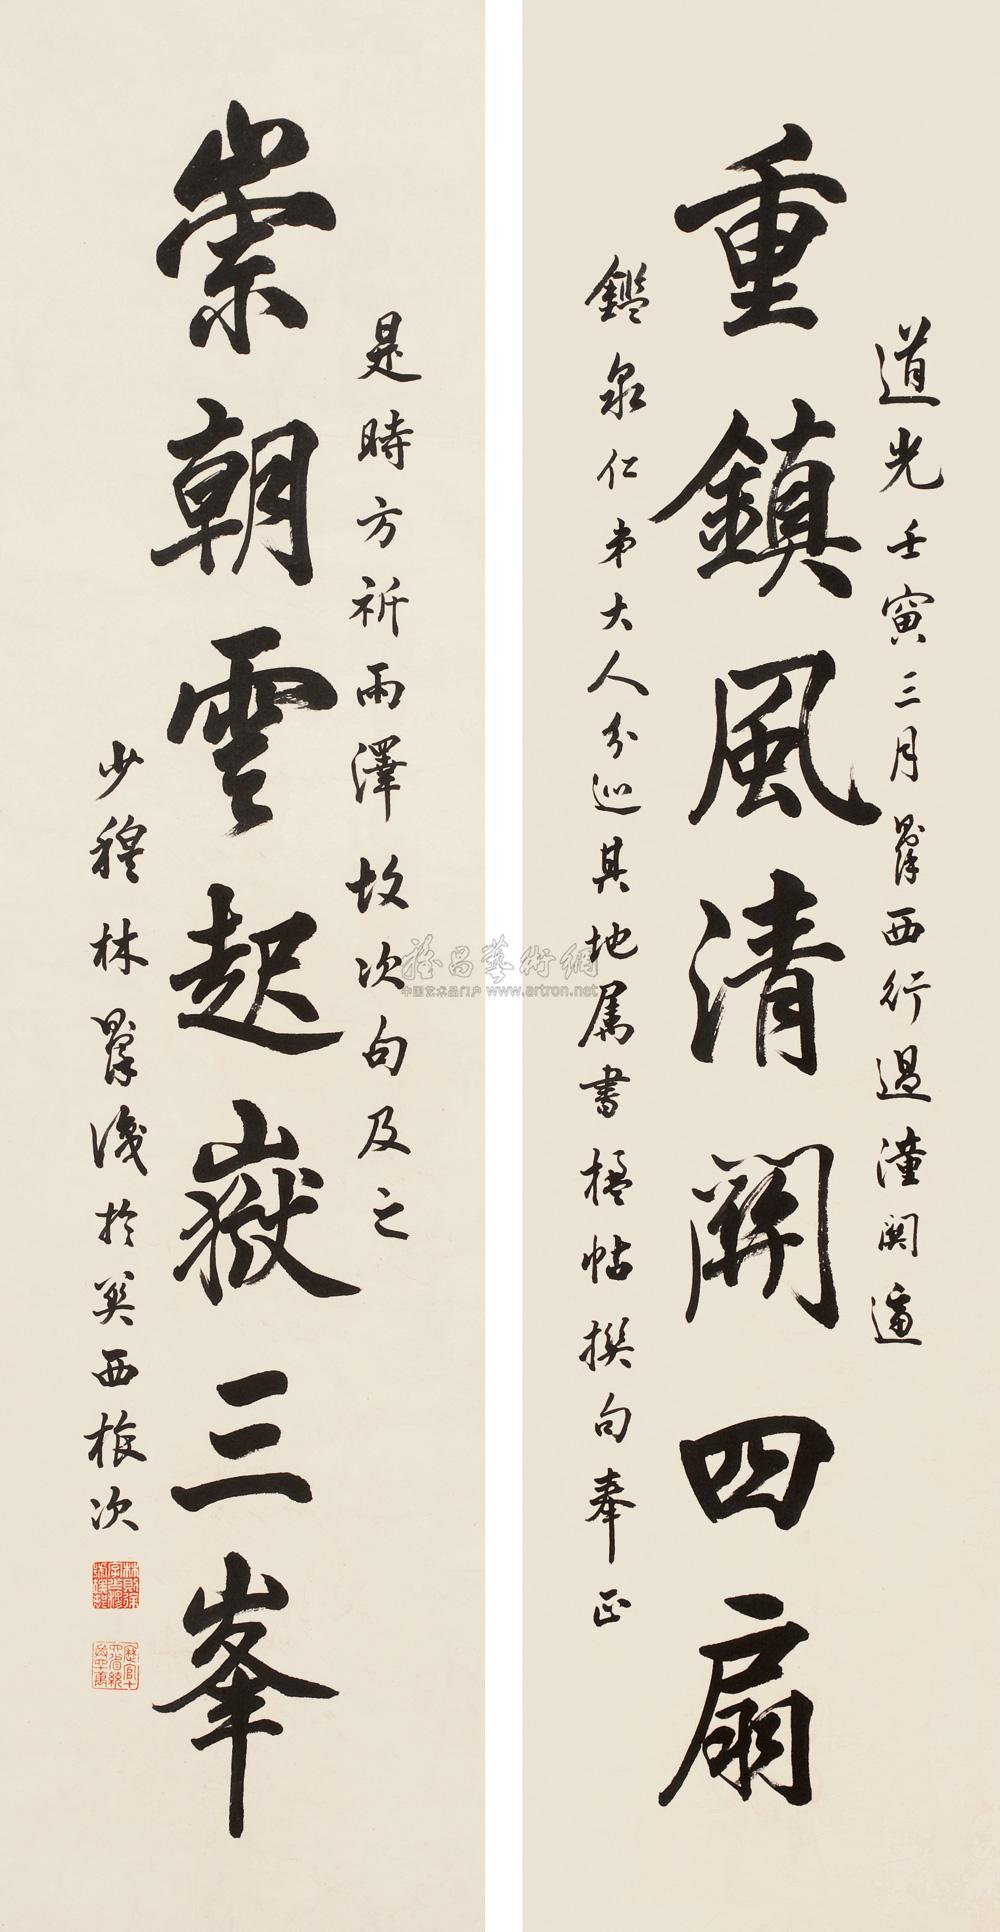 道光壬寅三月則徐西行過潼關適
重鎮風清關四扇
鑑泉仁弟大人分巡其地属書楹帖撰句奉正
是時方祈雨澤故次句及之
崇朝雲起嶽三峯
少穆林則徐識於
西旅次
雅昌藝術網
中国艺术品门户 www.artron.net
林則徐
字少穆